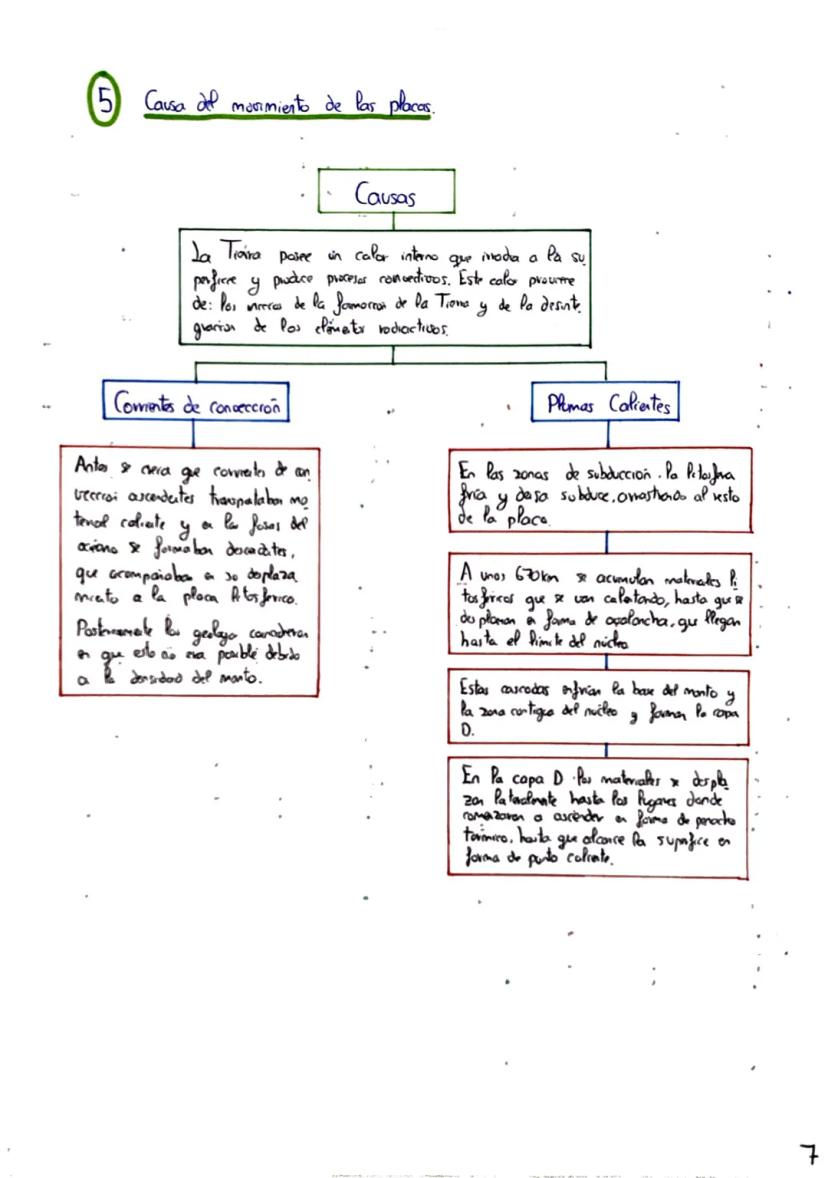 5 Causa del movimiento de las placas.
Causas
La Tierra posee un calor interno que irradia a la su
perficie y produce procesos convectivos. Este calor proviene
de: los de la formación de la Tierra y de la desint.
gración de los elementos radiactivos.
Corrientes de convección
Antes se creía que corrientes de con
vección ascendentes transportaban ma
terial caliente y en las fosas del
océano se formaban descendentes,
que acompañaban en su desplaza
miento a la placa litosférica.
Posteriormente los geólogos consideran
en que esto no era posible debido
a la densidad del manto.
Plumas Calientes
En las zonas de subducción. la litosfera
fría y densa subduce, arrastrando al resto
de la placa.
A unos 670km se acumulan materiales li
tosféricos que se van calentando, hasta que se
desploman en forma de avalancha, que llegan
hasta el límite del núcleo
Estas cascadas enfrían la base del manto y
la zona contigua del núcleo y forman la capa
D.
En la capa D los materiales se despla
zan lateralmente hasta los lugares donde
comenzaran a ascender en forma de penacho
térmico, hasta que alcance la superfice en
forma de punto caliente.
7